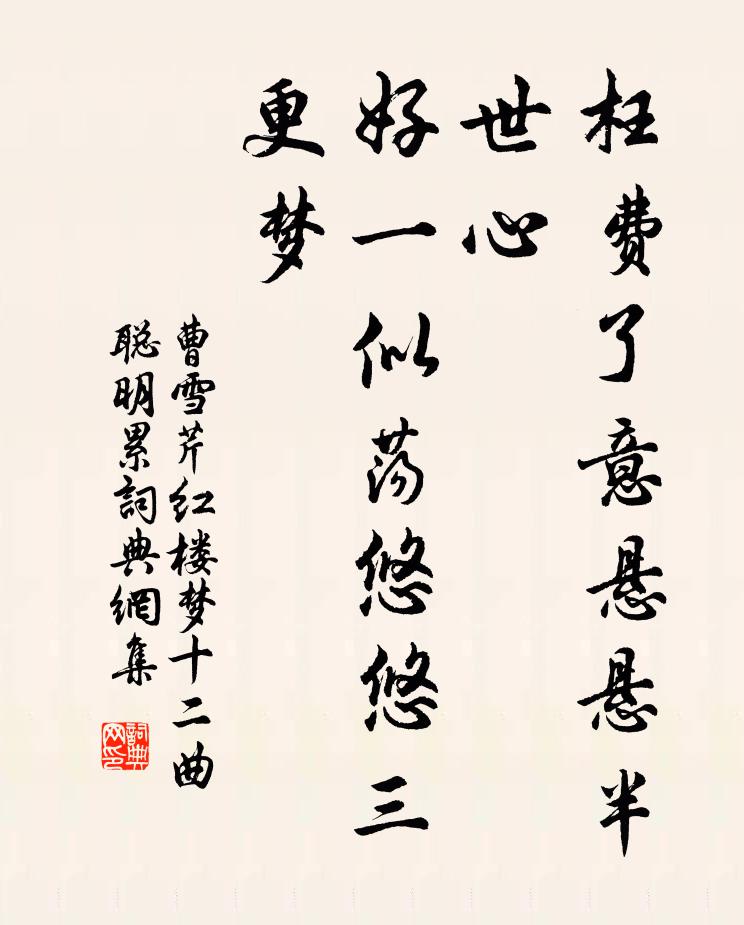 枉费了意悬悬半
世心
好一似荡悠悠三
更梦
曹雪芹红楼梦十二曲
聪明累詞典網集
詞典
网印